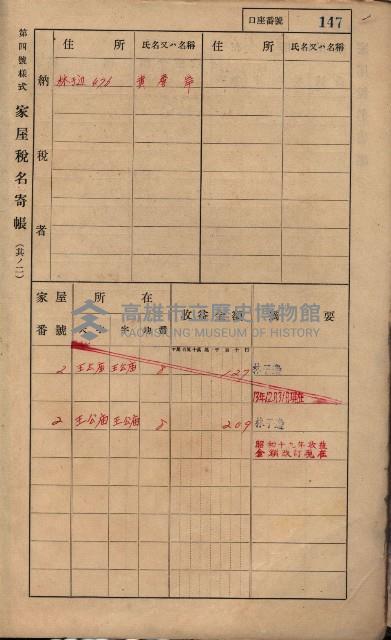 口座番號 147
第四號樣式 家屋稅名寄帳（其ノ二）
納稅者
住所 氏名又ハ名稱 住所 氏名又ハ名稱
林子邊 476
家屋番號 所在 收益金額 摘要
高雄市立歷史博物館
KAOHSIUNG MUSEUM OF HISTORY
2 王公廟 王公廟 8 127 林子邊
2 王公廟 王公廟 8 209 林子邊
昭和十九年收益
金額改訂現在